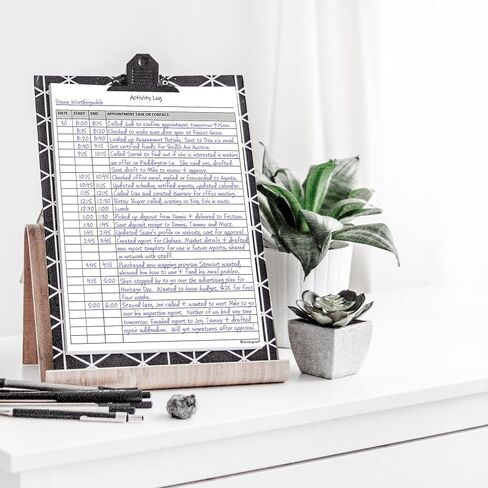 Activity Log
Dawn Worthington
DATE START END APPOINTMENT TASK OR CONTACT
5/1 8:00 8:15 Called Judi to confirm appointment tomorrow 9:15am.
8:15 8:20 Checked to make sure door open at Forest Grove.
8:20 8:40 Looked up Assessment Details. Sent to Dan via email.
8:40 9:15 Got certified funds for Battle Ave Auction.
9:15 10:15 Called Sarah to find out if she is interested in making
an offer on Paddington Ln. She said yes, drafted.
Sent draft to Mike to review & approve.
10:15 10:45 Checked office email, replied or forwarded to Agents.
10:45 11:15 Updated schedule, notified agents, updated calendar.
11:15 Called Dan and created itinerary for office meeting.
12:15 Betsy Buyer called, waiting on firm, fire in route.
12:30 1:00 Lunch
1:00 1:30 Picked up deposit from Dennis & delivered to Kristen.
1:30 1:45 Sent deposit receipt to Dennis, Tammy & Matt.
1:45 2:45 Updated Suzi's profile & website, sent for approval.
2:45 3:45 Created report for Chelsea. Market details & drafted
new report template for use in future reports, shared
in network with staff.
3:45 4:15 Purchased new mapping program Stewart wanted,
showed him how to use & fixed his email problem.
4:15 5:00 Shari stopped by to go over the advertising plan for
Heritage Den. Wanted to know budget, $2K for first
four weeks.
5:00 6:00 Stayed late, Jen called & wanted to meet Mike to go
over his inspection report. Neither of us had any time
tomorrow. Emailed report to Jen, Tammy & drafted
repair addendum. Will get signatures after approval.